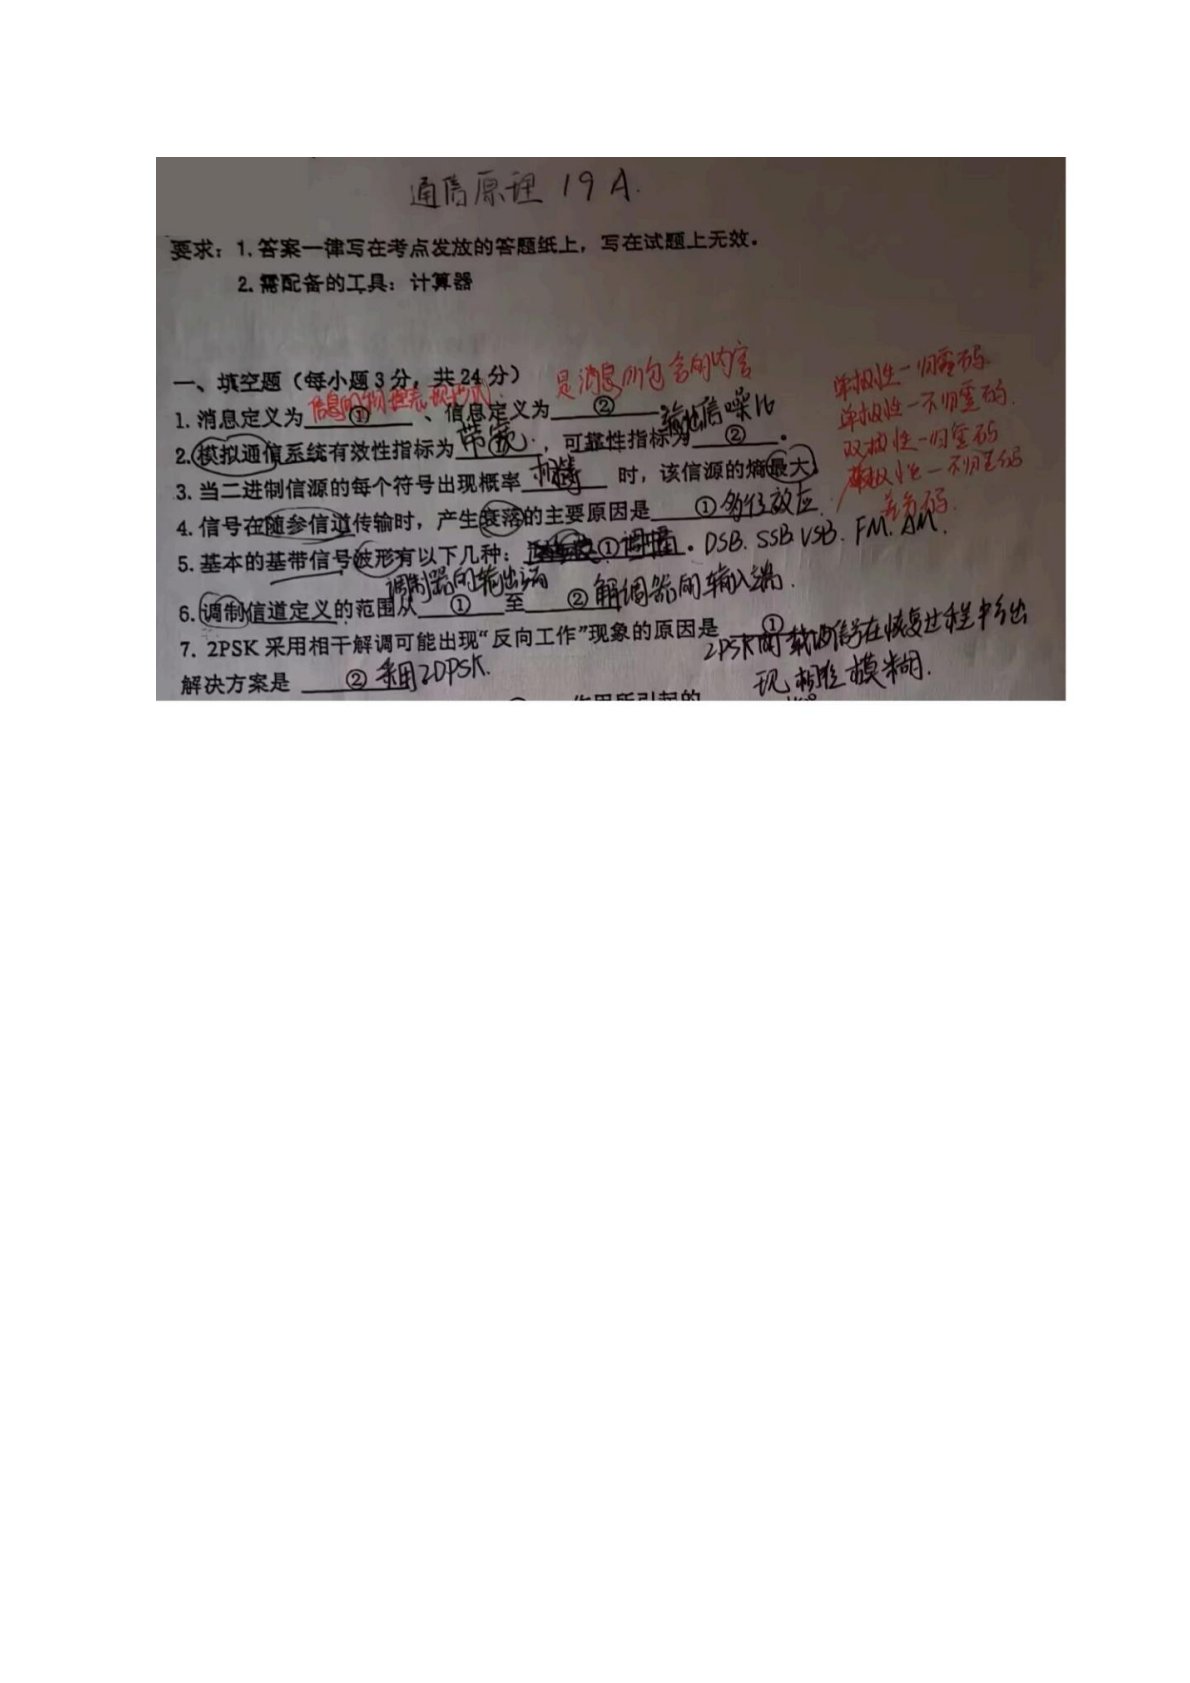 通信原理 19 A.
要求：1. 答案一律写在考点发放的答题纸上，写在试题上无效。
2. 需配备的工具：计算器
一、填空题（每小题 3 分，共 24 分）
是消息所包含的内容
单极性－归零码
信息的物理表现形式
单极性－不归零码.
1. 消息定义为 ① 、信息定义为 ②
输出信噪比
双极性－归零码
2. 模拟通信系统有效性指标为 带宽 ① ，可靠性指标为 ② 。
双极性－不归零码
3. 当二进制信源的每个符号出现概率 相等 时，该信源的熵最大。
差分码.
4. 信号在随参信道传输时，产生衰落的主要原因是 ① 多径效应.
5. 基本的基带信号波形有以下几种： ① 调幅 。DSB. SSB. VSB. FM. AM.
调制器的输出端
解调器的输入端.
6. 调制信道定义的范围从 ① 至 ②
7. 2PSK 采用相干解调可能出现“反向工作”现象的原因是 ①
2PSK的载波信号在恢复过程中会出
现相位模糊.
解决方案是 ② 采用2DPSK.
作用所引起的